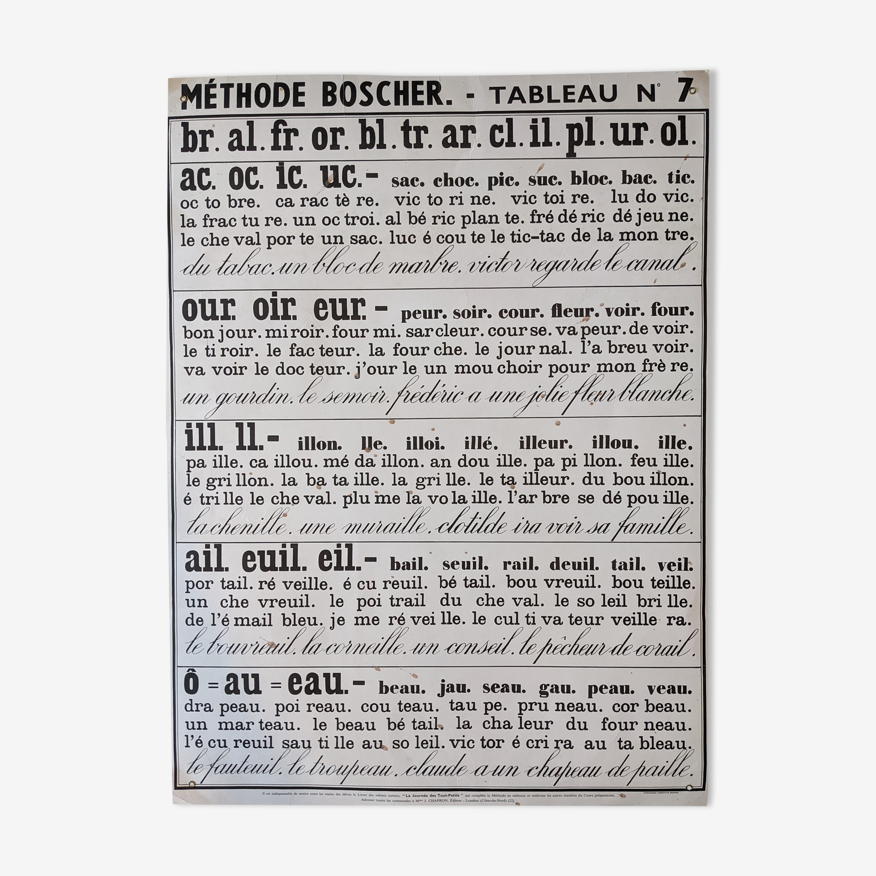 MÉTHODE BOSCHER. - TABLEAU N° 7
br. al. fr. or. bl. tr. ar. cl. il. pl. ur. ol.
ac. oc. ic. uc.- sac. choc. pic. suc. bloc. bac. tic.
oc to bre. ca rac tè re. vic to ri ne. vic toi re. lu do vic.
la frac tu re. un oc troi. al bé ric plan te. fré dé ric dé jeu ne.
le che val por te un sac. luc é cou te le tic-tac de la mon tre.
du tabac. un bloc de marbre. victor regarde le canal.
our. oir. eur.- peur. soir. cour. fleur. voir. four.
bon jour. mi roir. four mi. sar cleur. cour se. va peur. de voir.
le ti roir. le fac teur. la four che. le jour nal. l'a breu voir.
va voir le doc teur. j'our le un mou choir pour mon frè re.
un gourdin. le semoir. frédéric a une jolie fleur blanche.
ill. ll.- illon. lle. illoi. illé. illeur. illou. ille.
pa ille. ca illou. mé da illon. an dou ille. pa pi llon. feu ille.
le gri llon. la ba ta ille. la gri lle. le ta illeur. du bou illon.
é tri lle le che val. plu me la vo la ille. l'ar bre se dé pou ille.
la chenille. une muraille. clotilde ira voir sa famille.
ail. euil. eil.- bail. seuil. rail. deuil. tail. veil.
por tail. ré veille. é cu reuil. bé tail. bou vreuil. bou teille.
un che vreuil. le poi trail du che val. le so leil bri lle.
de l'é mail bleu. je me ré vei lle. le cul ti va teur veille ra.
le bouvreuil. la corneille. un conseil. le pêcheur de corail.
ô = au = eau.- beau. jau. seau. gau. peau. veau.
dra peau. poi reau. cou teau. tau pe. pru neau. cor beau.
un mar teau. le beau bé tail. la cha leur du four neau.
l'é cu reuil sau ti lle au so leil. vic tor é cri ra au ta bleau.
le fauteuil. le troupeau. claude a un chapeau de paille.
"La Journée des Tout-Petits"